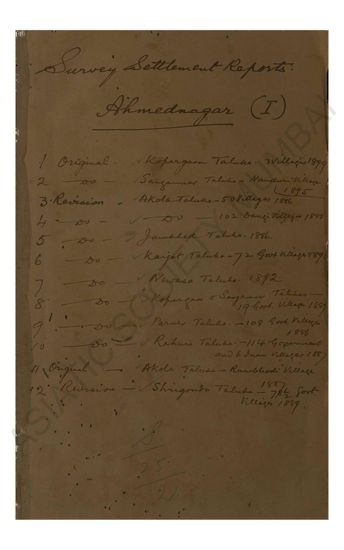 Survey Settlement Reports.
Ahmednagar (I)
1 Original - Kopergaon Taluka - 3 villages
2 — Do — Sangamner Taluka - Village
1895
3. Revision - Akola Taluka - 50 Villages 1886
4 — Do — — Do — 102 Villages
5 — Do — Jamkhed Taluka. 1886.
6 — Do — Karjat Taluka - 72 Govt Villages
7 — Do — Newasa Taluka. 1892
8 — Do — Kopergaon & Sangamner Taluka —
19 Govt. Village
9 — Do — Parner Taluka - 108 Govt Village
10 — Do — Rahuri Taluka - 114 Government
and 6 Inam Villages
11 Original — Akola Taluka - Village
1887
12 Revision — Shrigonda Taluka — Govt
Villages 1889.
ASIATIC SOCIETY OF MUMBAI